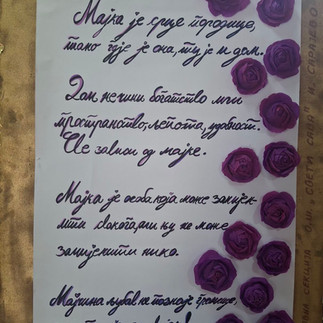 Мајка је срце породице,
тамо гдје је она, ту је и дом.
Дом не чини богатство или
пространство, љепота, удобност.
Све зависи од мајке.
Мајка је особа која може замијен-
ити свакога, али њу не може
замијенити нико.
Мајчина љубав не познаје границе,